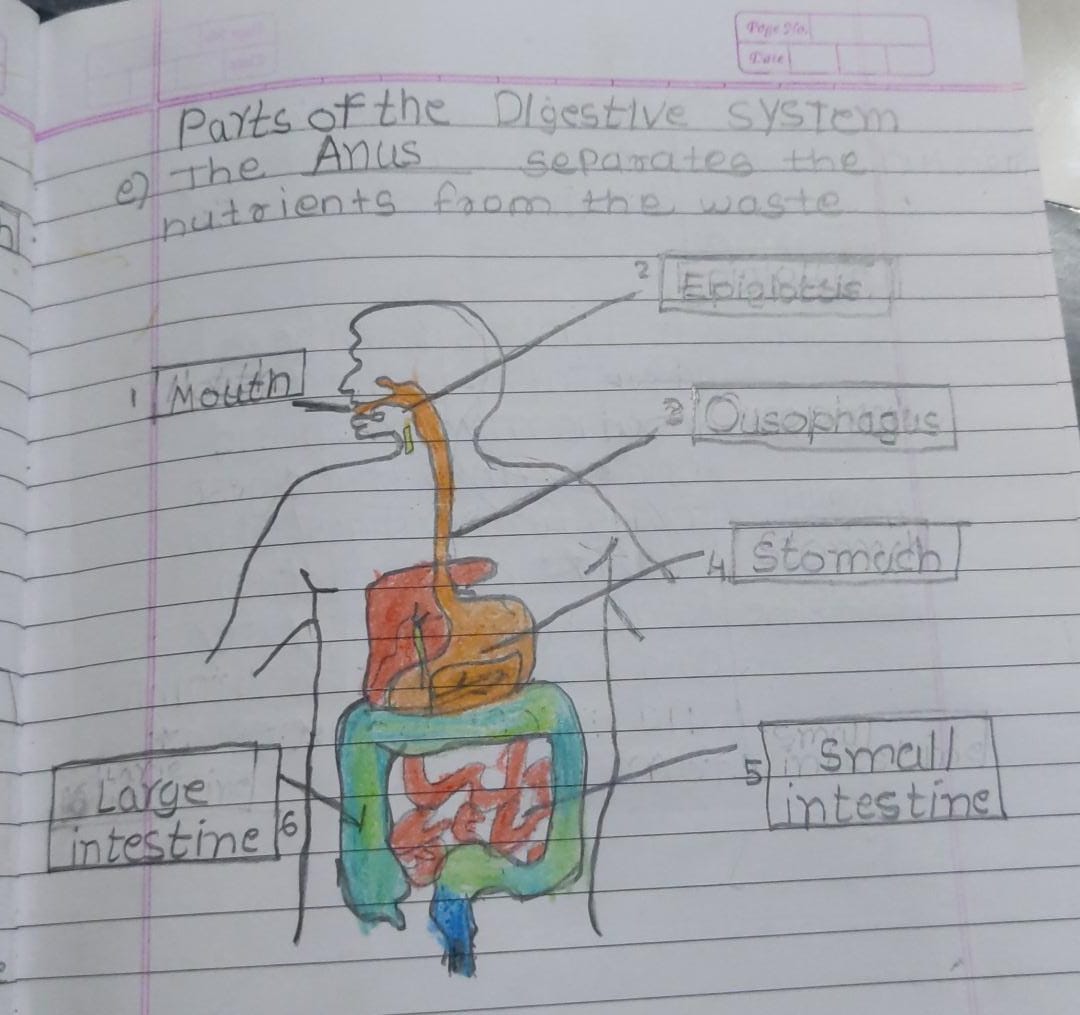 Page No.
Date
Parts of the Digestive system
e) The Anus separates the
nutrients from the waste
2 Epiglotsis
1 Mouth
3 Ousophagus
4 Stomach
5 Small
intestine
Large
intestine 6